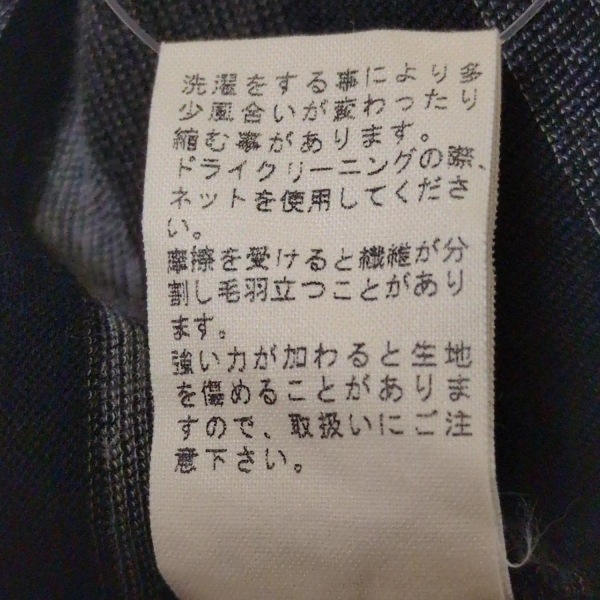 洗濯をする事により多
少風合いが変わったり
縮む事があります。
ドライクリーニングの際、
ネットを使用してくださ
い。
摩擦を受けると繊維が分
割し毛羽立つことがあり
ます。
強い力が加わると生地
を傷めることがありま
すので、取扱いにご注
意下さい。